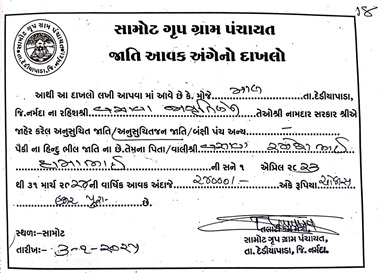 ૧8
સામોટ ગૃપ ગ્રામ પંચાયત
જાતિ આવક અંગેનો દાખલો
આથી આ દાખલો લખી આપવા માં આવે છે કે. મોજે માલ તા.દેડીયાપાડા,
જિ.નર્મદા ના રહિશશ્રી વસાવા તેઓશ્રી નામદાર સરકાર શ્રીએ
જાહેર કરેલ અનુસુચિત જાતિ/અનુસુચિતજન જાતિ/બક્ષી પંચ અન્ય -
પૈકી ના હિન્દુ ભીલ જાતિ ના છે.તેમના પિતા/વાલીશ્રી વસાવા
ની સને ૧ એપ્રિલ ૨૦૨૩
થી ૩૧ માર્ચ ૨૦૨૪ની વાર્ષિક આવક અંદાજે ૨૪૦૦૦/- અંકે રૂપિયા ચોવીસ
હજાર પુરા
સ્થળઃ-સામોટ
તારીખઃ- ૩-૧-૨૦૨૫
સામોટ ગૃપ ગ્રામ પંચાયત
તા. દેડીયાપાડા, જિ. નર્મદા.